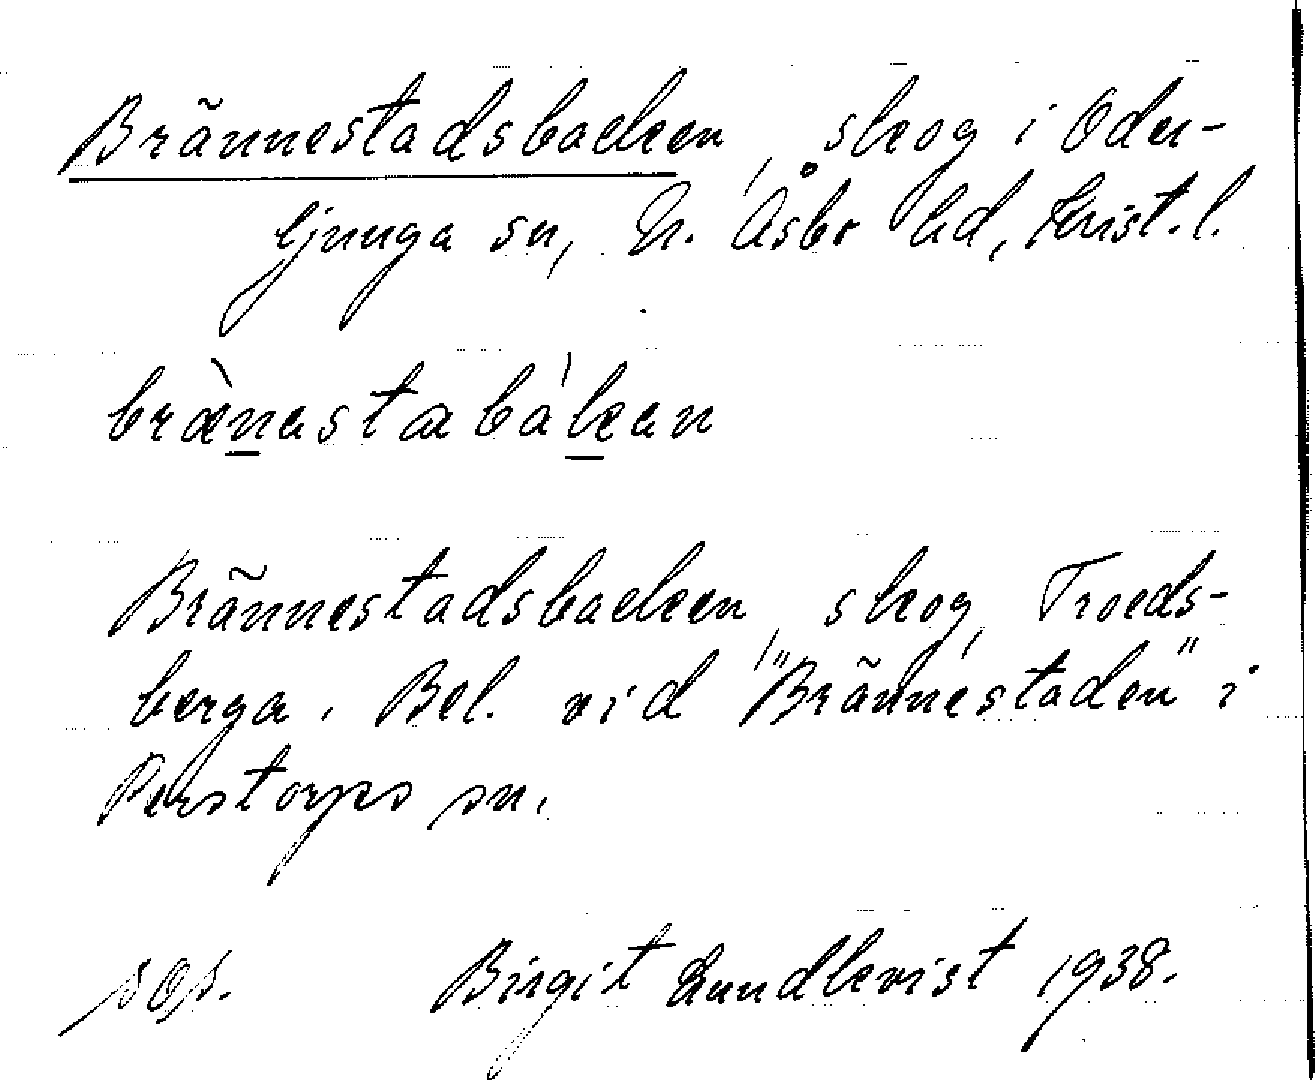 Brännestadsbacken, skog i Oder-
ljunga sn, N. Åsbo hd, Krist. l.
brænastabákan
Brännestadsbacken, skog, Troeds-
berga. Bel. vid "Brännestaden" i
Perstorps sn.
Birgit Lundkvist 1938.